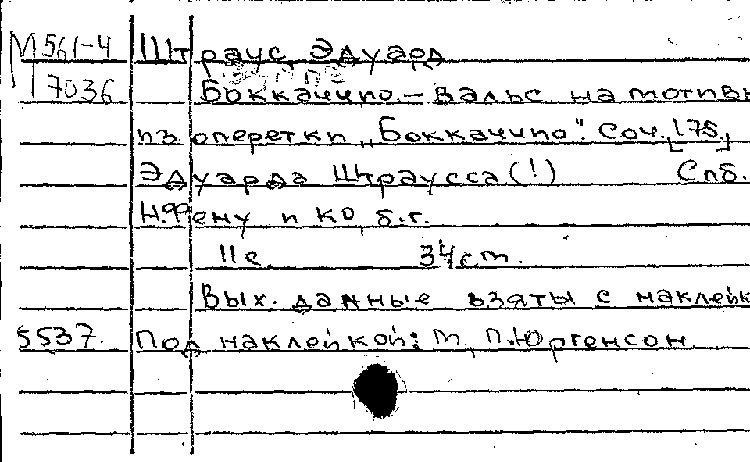 М 561-4 Штраус, Эдуард
7036 Боккаччио. – Вальс на мотивы
из оперетки „Боккаччио". Соч. 175.
Эдуарда Штраусса (!) Спб.
Н. Фену и К0, б.г.
11 с. 34 cm.
Вых. данные взяты с наклейк
5537. Под наклейкой: М, П. Юргенсон